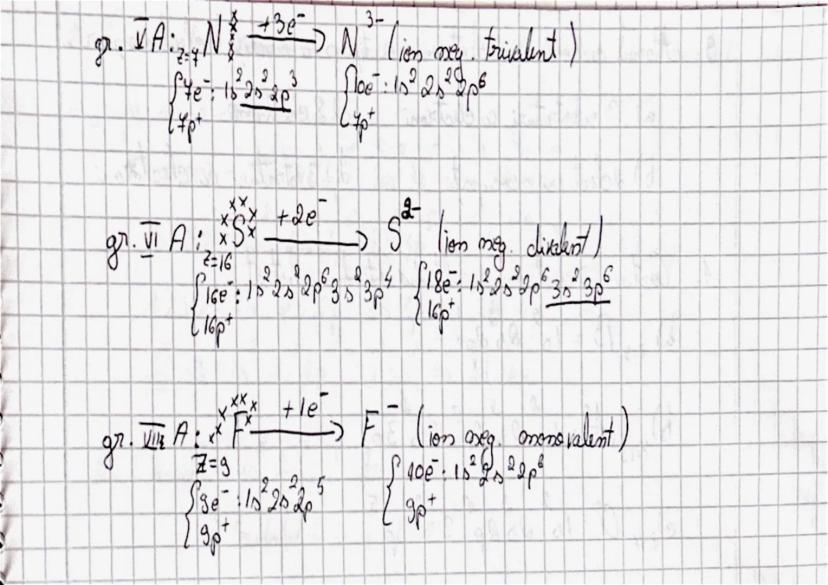 gr. VA: N +3e⁻ → N³⁻ (ion neg. trivalent)
z=7
{7e⁻: 1s² 2s² 2p³ {10e⁻: 1s² 2s² 2p⁶
7p⁺ 7p⁺
gr. VI A: S +2e⁻ → S²⁻ (ion neg. divalent)
z=16
{16e⁻: 1s² 2s² 2p⁶ 3s² 3p⁴ {18e⁻: 1s² 2s² 2p⁶ 3s² 3p⁶
16p⁺ 16p⁺
gr. VII A: F +1e⁻ → F⁻ (ion neg. monovalent)
Z=9
{9e⁻: 1s² 2s² 2p⁵ {10e⁻: 1s² 2s² 2p⁶
9p⁺ 9p⁺